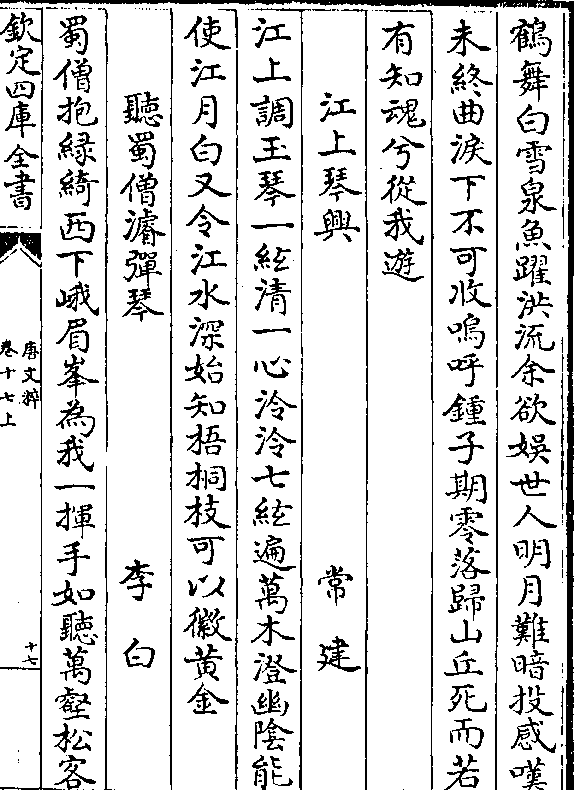 鶴舞白雪泉魚躍洪流余欲娛世人明月難暗投感嘆
未終曲淚下不可收嗚呼鍾子期零落歸山丘死而若
有知魂兮從我遊
江上琴興　常建
江上調玉琴一絃清一心泠泠七絃遍萬木澄幽陰能
使江月白又令江水深始知梧桐枝可以徽黃金
聽蜀僧濬彈琴　李白
蜀僧抱緑綺西下峨眉峯為我一揮手如聽萬壑松客
欽定四庫全書
唐文粹
卷十七上
十七